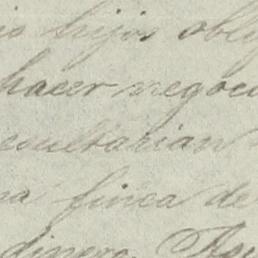 hijos oblig
hacer negoci
cultarian
na finca de
dinero.